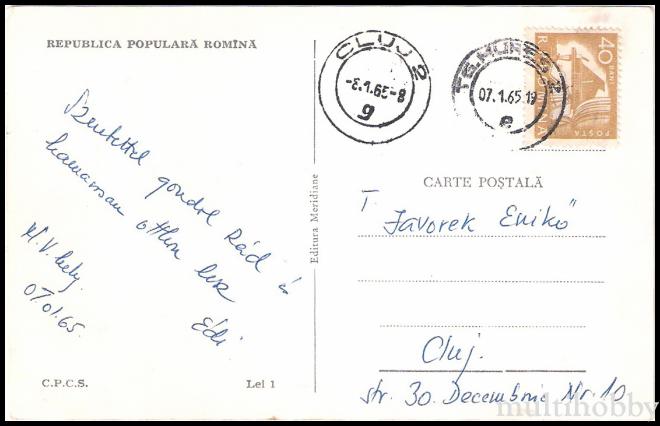 REPUBLICA POPULARĂ ROMÎNĂ
Szeretettel gondol Rád és
hamarosan otthon lesz
Édi
M.V.hely
07.01.65.
C.P.C.S.
Lei 1
Editura Meridiane
CLUJ 2
-8.1.65-8
g
TG.MUREȘ 2
07.1.65.19
e
40 BANI
POSTA
CARTE POȘTALĂ
T. Javorek Enikő
Cluj.
str. 30 Decembrie Nr. 10
multihobby